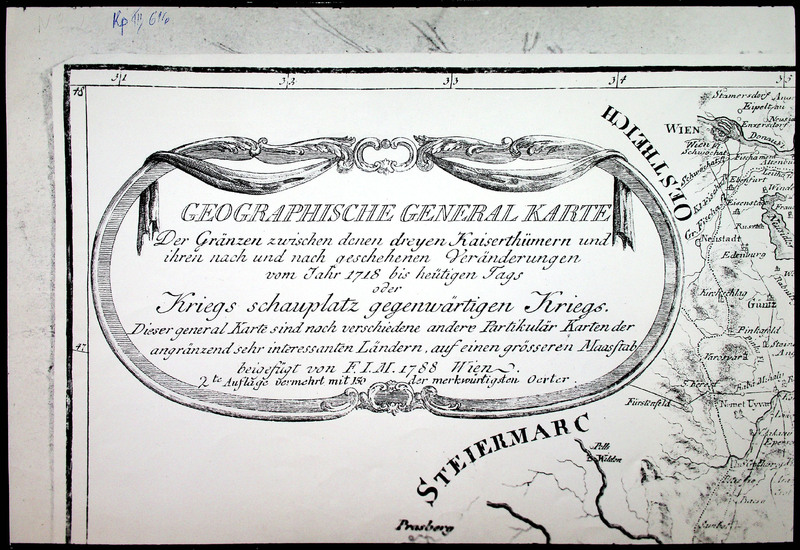 31
32
33
34
48
47
GEOGRAPHISCHE GENERAL KARTE
Der Gränzen zwischen denen dreyen Kaiserthümern und
ihren nach und nach geschehenen Veränderungen
vom Jahr 1718 bis heütigen Tags
oder
Kriegs schauplatz gegenwärtigen Kriegs.
Dieser general Karte sind noch verschiedene andere Partikulär Karten der
angränzend sehr interessanten Ländern, auf einen grösseren Maasstab
beigefügt von F.I.M. 1788 Wien
2te Auflage vermehrt mit 150 der merkwürtigsten Oerter.
OESTREICH
STEIERMARC
Stamersdorf
Eipeltau
Enzersdorf
WIEN
Donau
Wien
Schwechat
Fischament
Ebenfurt
Eisensta
Neustadt
Edenburg
Kirchschlag
Güntz
Pinkafeld
Fürstenfeld
Nemet Uyvar
Pells
Wildon
Prasberg